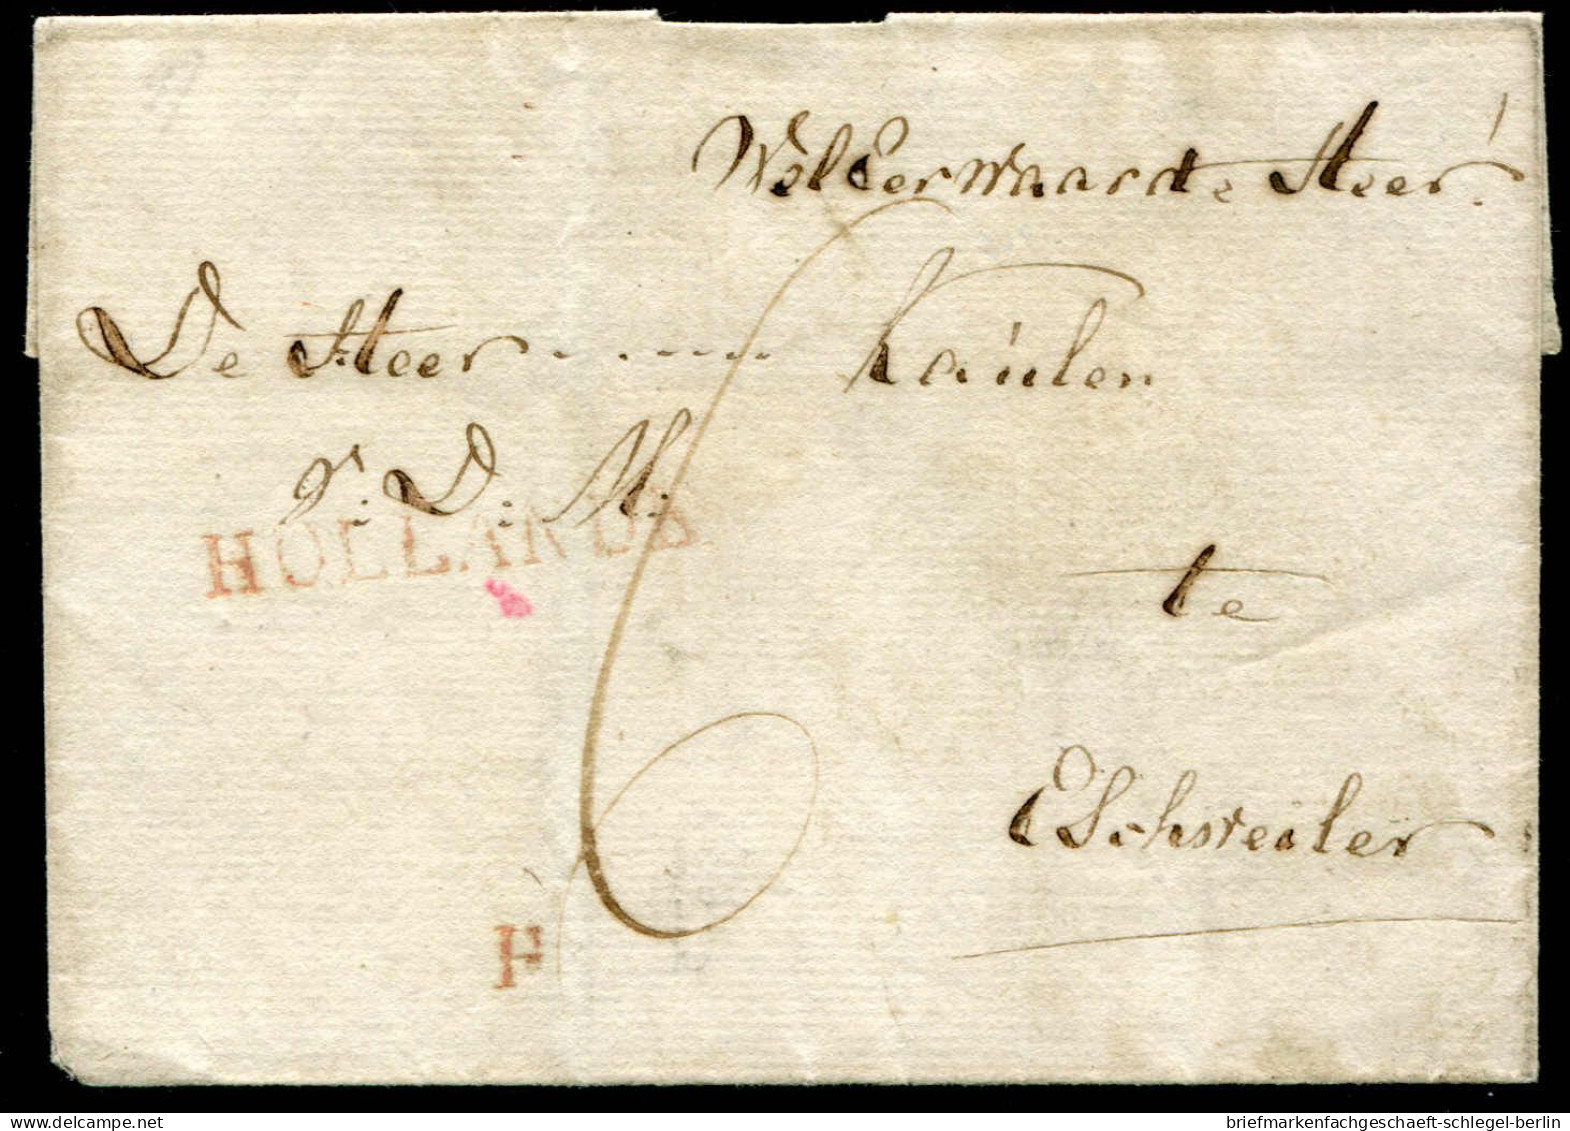 WelEerwaarde Heer!
De Heer . . . . . . . . Kaúlen
P: D: M:
HOLLANDE
6
te
ESchweiler
F
www.delcampe.net
briefmarkenfachgeschaeft-schlegel-berlin